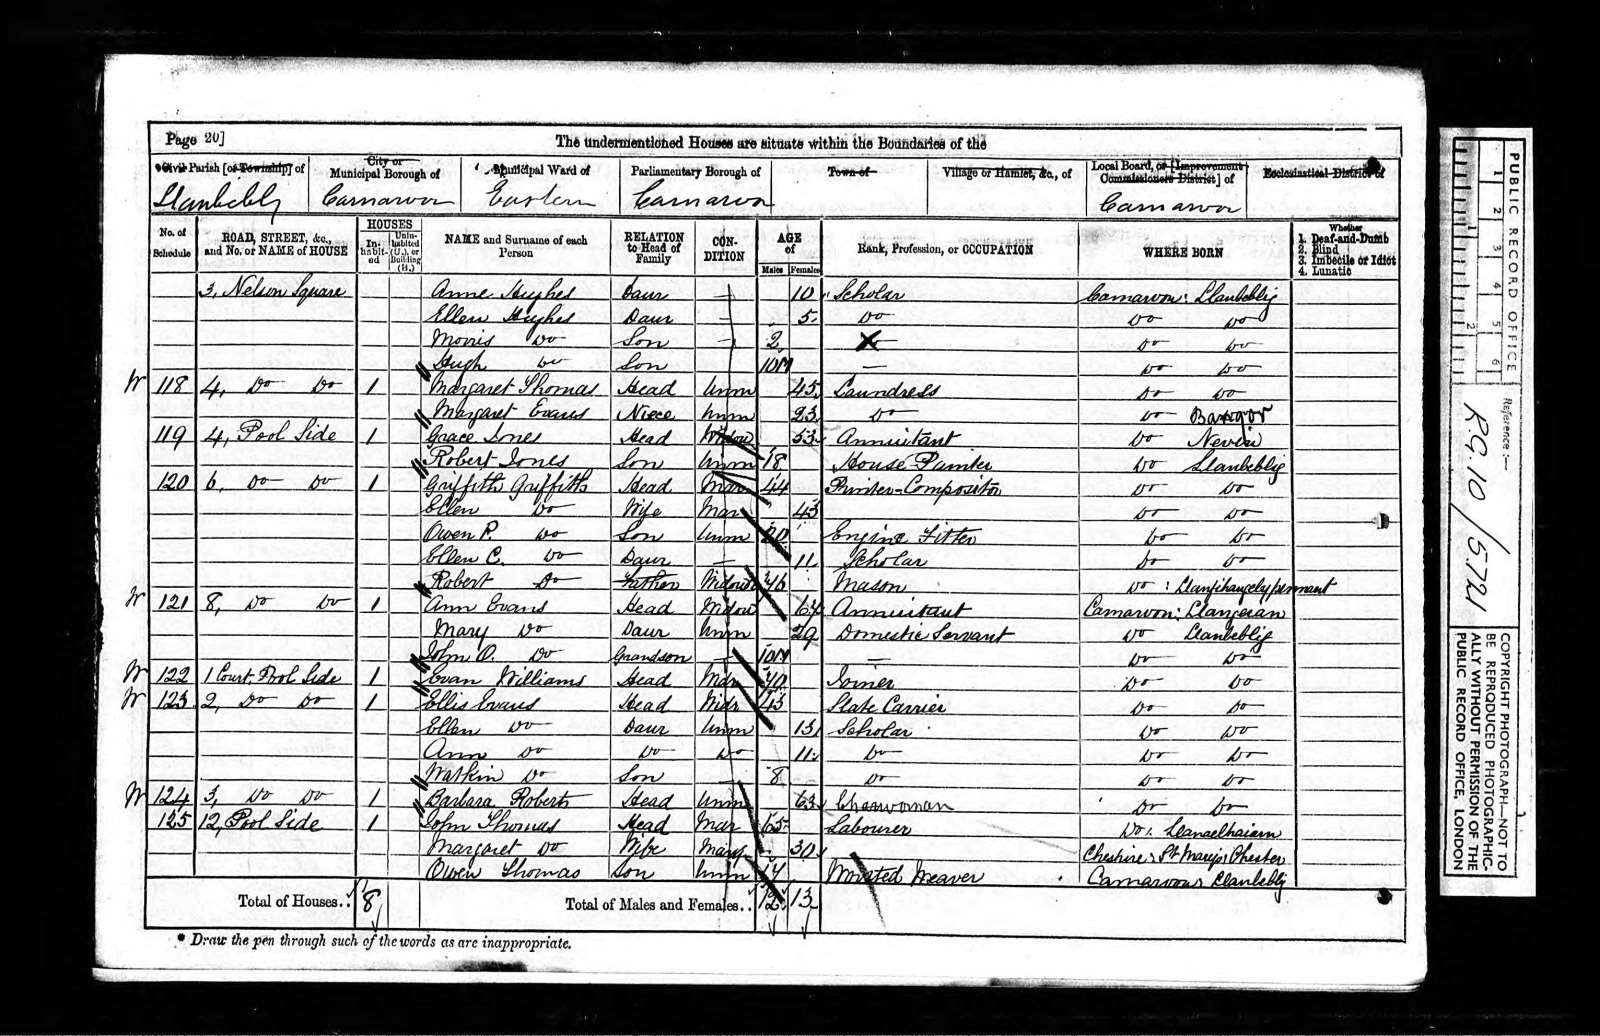 Page 20]
The undermentioned Houses are situate within the Boundaries of the
Civil Parish [or Township] of
City or Municipal Borough of
Municipal Ward of
Parliamentary Borough of
Town of
Village or Hamlet, &c., of
Local Board, or [Improvement Commissioners District] of
Ecclesiastical District of
Llanbeblig Carnarvon Eastern Carnarvon Carnarvon
No. of Schedule
ROAD, STREET, &c., and No. or NAME of HOUSE
HOUSES
In-habit-ed
Unin-habited (U.), or Building (B.)
NAME and Surname of each Person
RELATION to Head of Family
CON-DITION
AGE of
Males Females
Rank, Profession, or OCCUPATION
WHERE BORN
Whether
1. Deaf-and-Dumb
2. Blind
3. Imbecile or Idiot
4. Lunatic
3, Nelson Square Anne Hughes Daur — 10 Scholar Carnarvon: Llanbeblig
Ellen Hughes Daur — 5 Do Do Do
Morris Do Son — 2 Do Do
Hugh Do Son 10M — Do Do
W 118 4, Do Do 1 Margaret Thomas Head Unm 45 Laundress Do Do
Margaret Evans Niece Unm 23 Do Do Bangor
119 4, Pool Side 1 Grace Jones Head Widow 53 Annuitant Do Nevin
Robert Jones Son Unm 18 House Painter Do Llanbeblig
120 6, Do Do 1 Griffith Griffiths Head Mar 44 Printer-Compositor Do Do
Ellen Do Wife Mar 43 Do Do
Owen P. Do Son Unm 20 Engine Fitter Do Do
Ellen C. Do Daur — 11 Scholar Do Do
Robert Do Father Widowr 76 Mason Do: Llanfihangelypennant
W 121 8, Do Do 1 Ann Evans Head Widow 64 Annuitant Carnarvon:
Mary Do Daur Unm 29 Domestic Servant Do Llanbeblig
John O. Do Grandson — 10M — Do Do
W 122 1 Court, Pool Side 1 Evan Williams Head Widr 40 Joiner Do Do
W 123 2, Do Do 1 Ellis Evans Head Widr 43 Slate Carrier Do Do
Ellen Do Daur Unm 13 Scholar Do Do
Ann Do Do Do 11 Do Do Do
Watkin Do Son — 8 Do Do Do
W 124 3, Do Do 1 Barbara Roberts Head Unm 63 Charwoman Do Do
125 12, Pool Side 1 John Thomas Head Mar 65 Labourer Do: Llanaelhaiarn
Margaret Do Wife Mar 30 Cheshire: St Marys: Chester
Owen Thomas Son Unm 17 Worsted Weaver Carnarvon: Llanbeblig
Total of Houses.. 8 Total of Males and Females.. 12 13
* Draw the pen through such of the words as are inappropriate.
PUBLIC RECORD OFFICE
1 2 3 4 5 6
1 2
Reference:—
RG 10 / 5721
COPYRIGHT PHOTOGRAPH—NOT TO
BE REPRODUCED PHOTOGRAPHIC-
ALLY WITHOUT PERMISSION OF THE
PUBLIC RECORD OFFICE, LONDON